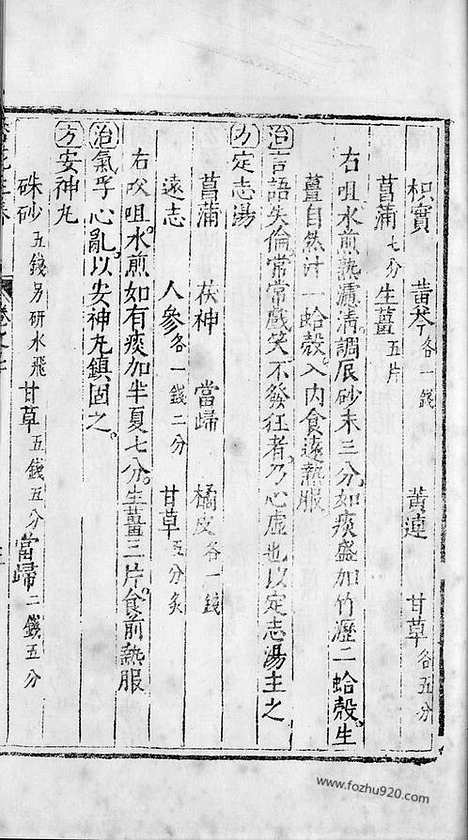 枳實 黃芩各一錢 黃連 甘草各五分
菖蒲七分生薑五片
右咀水煎熟瀘清調辰砂末三分如痰盛加竹瀝二蛤殼生
薑自然汁一蛤殼入內食遠熱服
治言語失倫常常戲笑不發狂者乃心虛也以定志湯主之
方定志湯
菖蒲 茯神 當歸 橘皮各一錢
遠志 人參各一錢二分 甘草五分炙
右㕮咀水煎如有痰加半夏七分生薑三片食前熱服
治氣浮心亂以安神丸鎮固之
方安神丸
硃砂五錢另研水飛甘草五錢五分當歸二錢五分
www.fozhu920.com